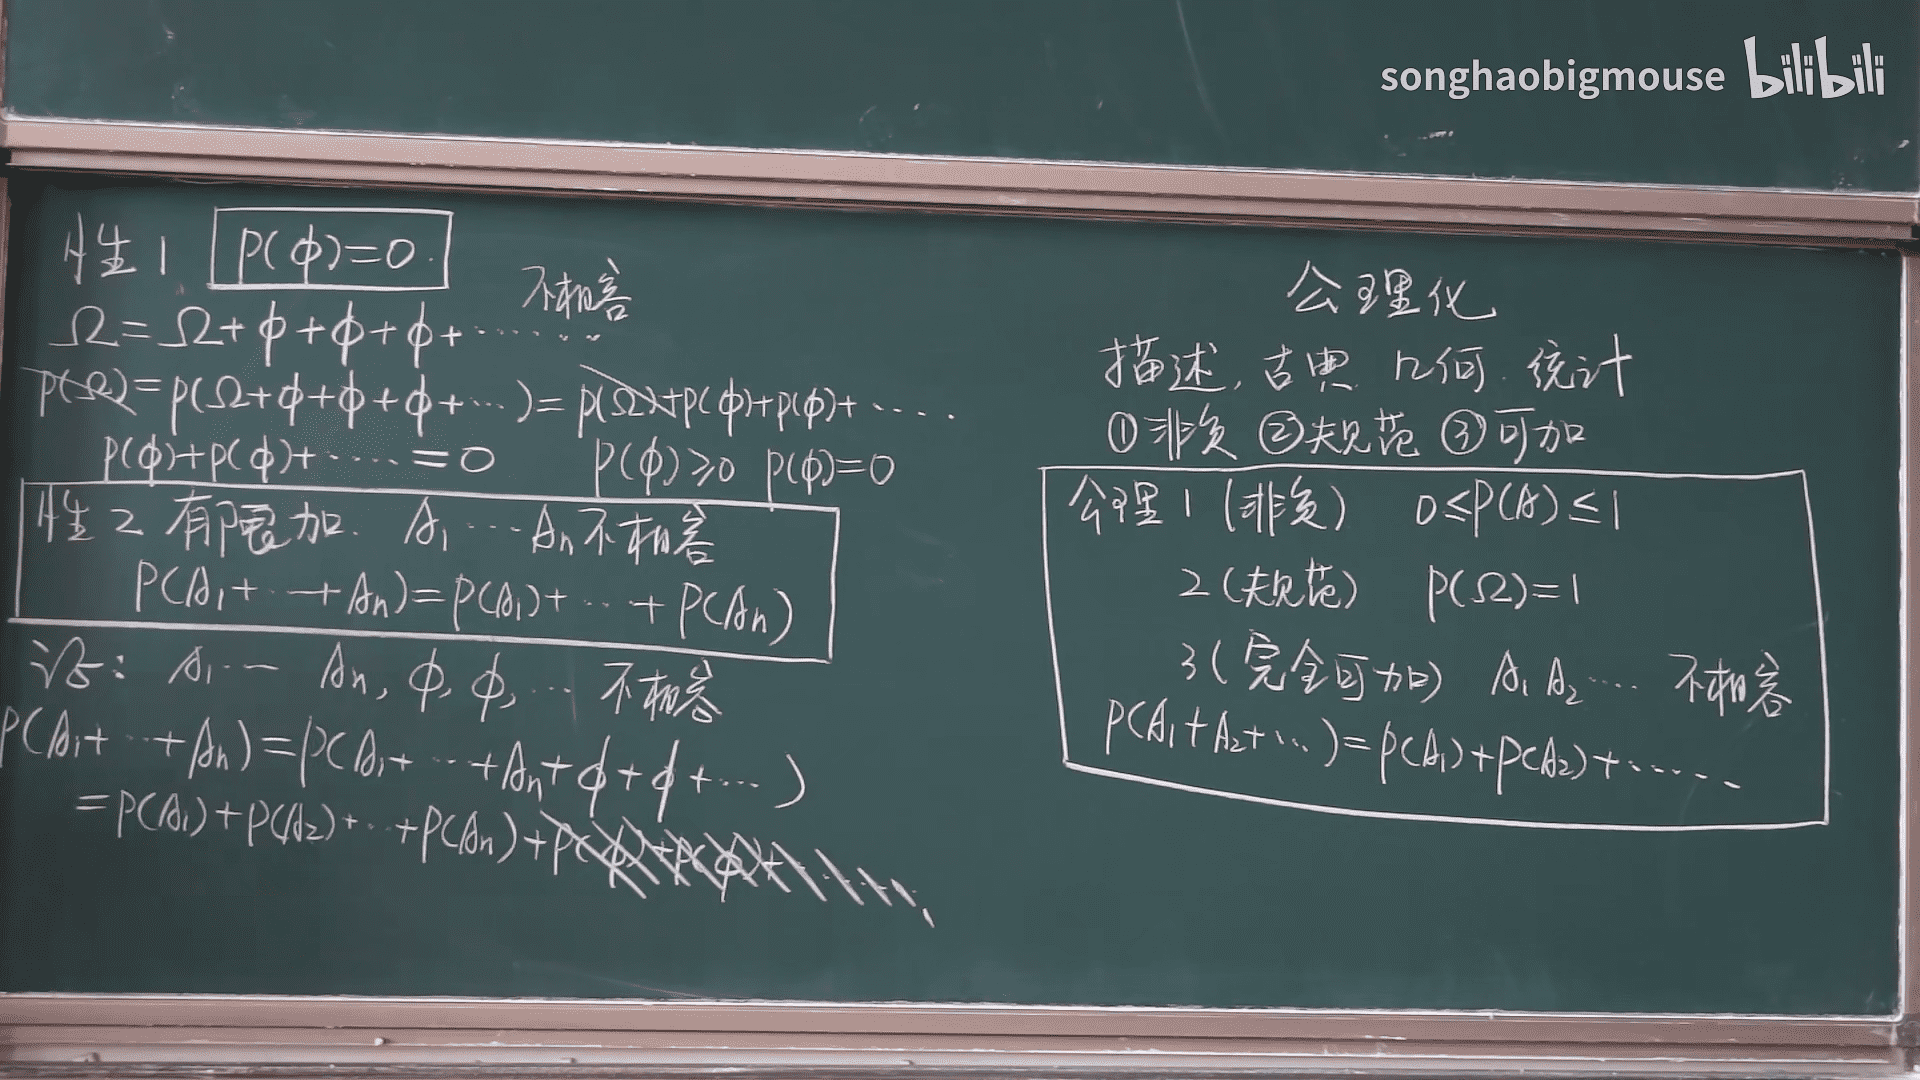 songhaobigmouse bilibili
性1 P(φ)=0.
不相容
Ω=Ω+φ+φ+φ+······
P(Ω)=P(Ω+φ+φ+φ+···)=P(Ω)+P(φ)+P(φ)+····.
P(φ)+P(φ)+·····=0 P(φ)≥0 P(φ)=0
性2 有限加. A₁···Aₙ不相容
P(A₁+···+Aₙ)=P(A₁)+···+P(Aₙ)
证: A₁··· Aₙ,φ,φ,··· 不相容
P(A₁+···+Aₙ)=P(A₁+···+Aₙ+φ+φ+···)
=P(A₁)+P(A₂)+···+P(Aₙ)+P(φ)+P(φ)+·····
公理化
描述,古典 几何.统计
①非负 ②规范 ③可加
公理1(非负) 0≤P(A)≤1
2(规范) P(Ω)=1
3(完全可加) A₁A₂···· 不相容
P(A₁+A₂+···)=P(A₁)+P(A₂)+······